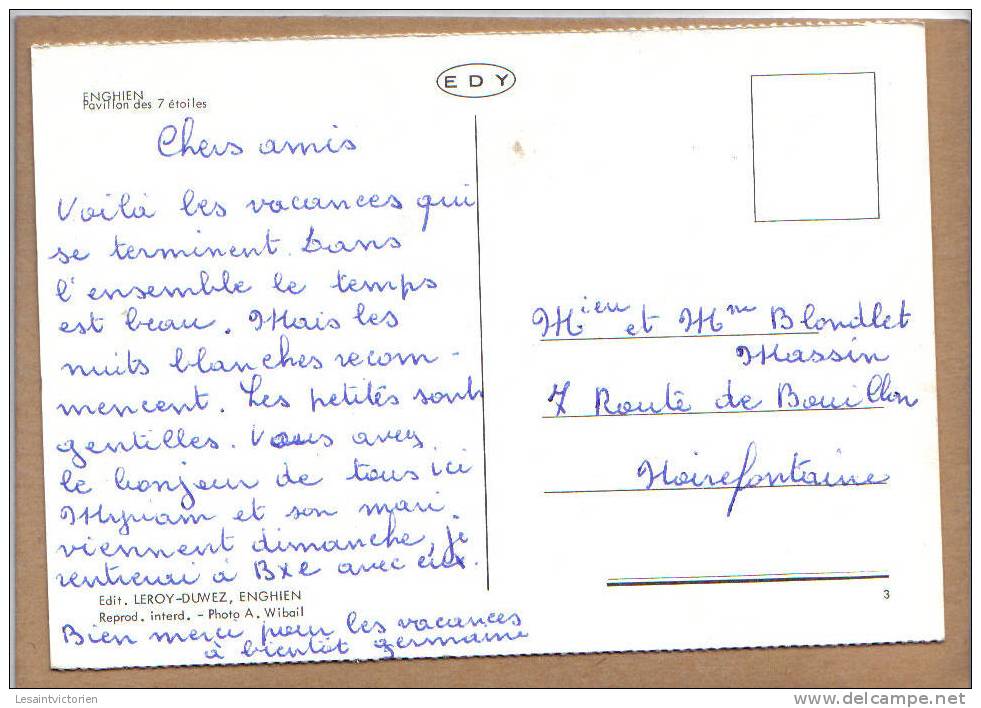 ENGHIEN
Pavillon des 7 étoiles
E D Y
Chers amis
Voilà les vacances qui
se terminent. Dans
l'ensemble le temps
est beau. Mais les
nuits blanches recom-
mencent. Les petites sont
gentilles. Vous avez
le bonjour de tous ici
Myriam et son mari.
viennent dimanche, je
rentrerai à Bxe avec eux.
Edit. LEROY-DUWEZ, ENGHIEN
Reprod. interd. - Photo A. Wibail
Bien merci pour les vacances
à bientôt germaine
Mieu et Mme Blondlet
Massin
7 Route de Bouillon
Noirefontaine
3
Lesaintvictorien
delcampe.net